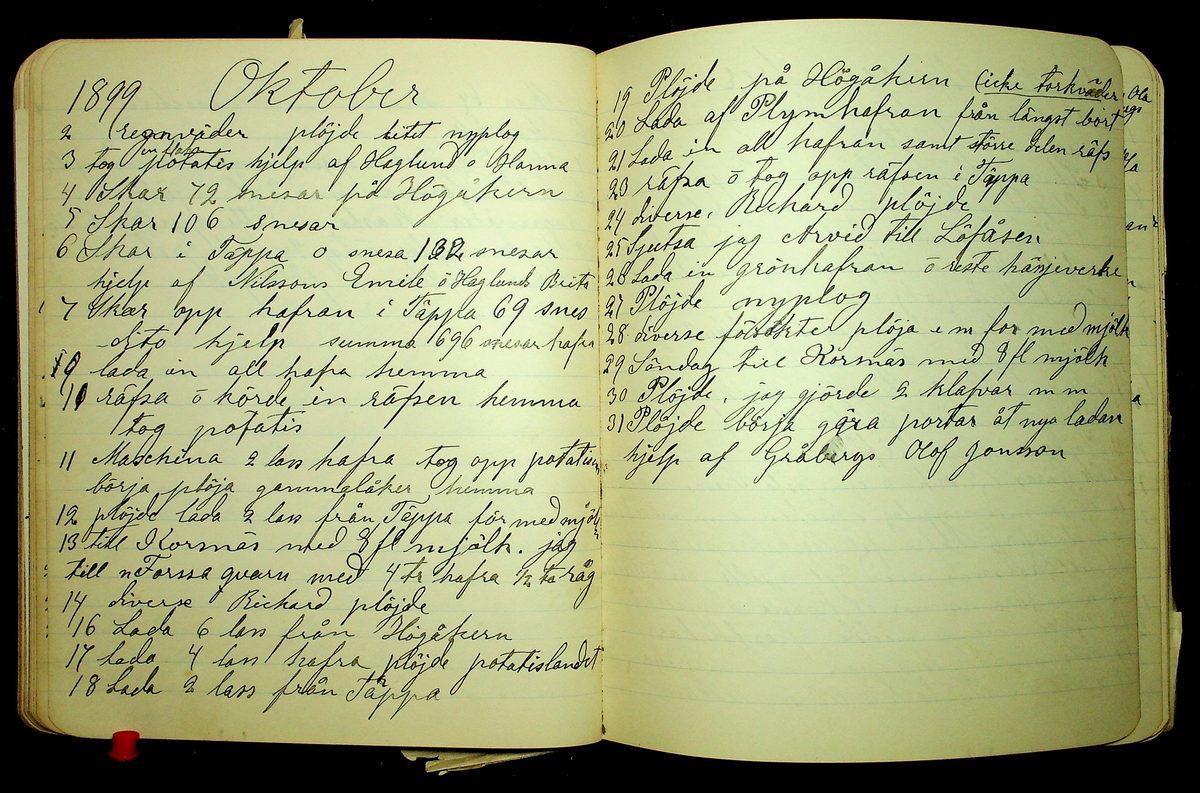 1899 Oktober
2 (regnväder plöjde litet nyplog
3 tog in sista potatis hjelp af Haglund o Hanna
4 Skar 72 snesar på Högåkern
5 Skar 106 snesar
6 Skar i Täppa o snesa 132 snesar
hjelp af Nilssons Emile ö Haglunds Brita
7 Skar opp hafran i Täppa 69 snes
dito hjelp summa 696 snesar hafra
9 lada in all hafra hemma
10 räfsa ö körde in räfsen hemma
tog potatis
11 Maschina 2 lass hafra tog opp potatisen
börja plöja gammalåker hemma
12 plöjde lada 2 lass från Täppa för med mjölk
13 till Korsnäs med 8 fl mjölk. jag
till n Forssa qvarn med 4 tr hafra 1/2 ta råg
14 diverse Richard plöjde
16 Lada 6 lass från Högåkern
17 Lada 4 lass hafra plöjde potatislandet
18 Lada 2 lass från Täppa
19 Plöjde på Högåkern (icke torkväder
20 Lada af Plymhafran från längst bort
21 Lada in all hafran samt större delen räfs
23 räfsa ö tog opp räfsen i Täppa
24 diverse, Richard plöjde
25 Sjutsa jag Arvid till Löfåsen
26 Lada in grönhafran ö reste hänjeverke
27 Plöjde nyplog
28 diverse försökte plöja e m for med mjölk
29 Söndag till Korsnäs med 8 fl mjölk
30 Plöjde, jag gjörde 2 klafvar m m
31 Plöjde börja göra portar åt nya ladan
hjelp af Gråbergs Olof Jonsson